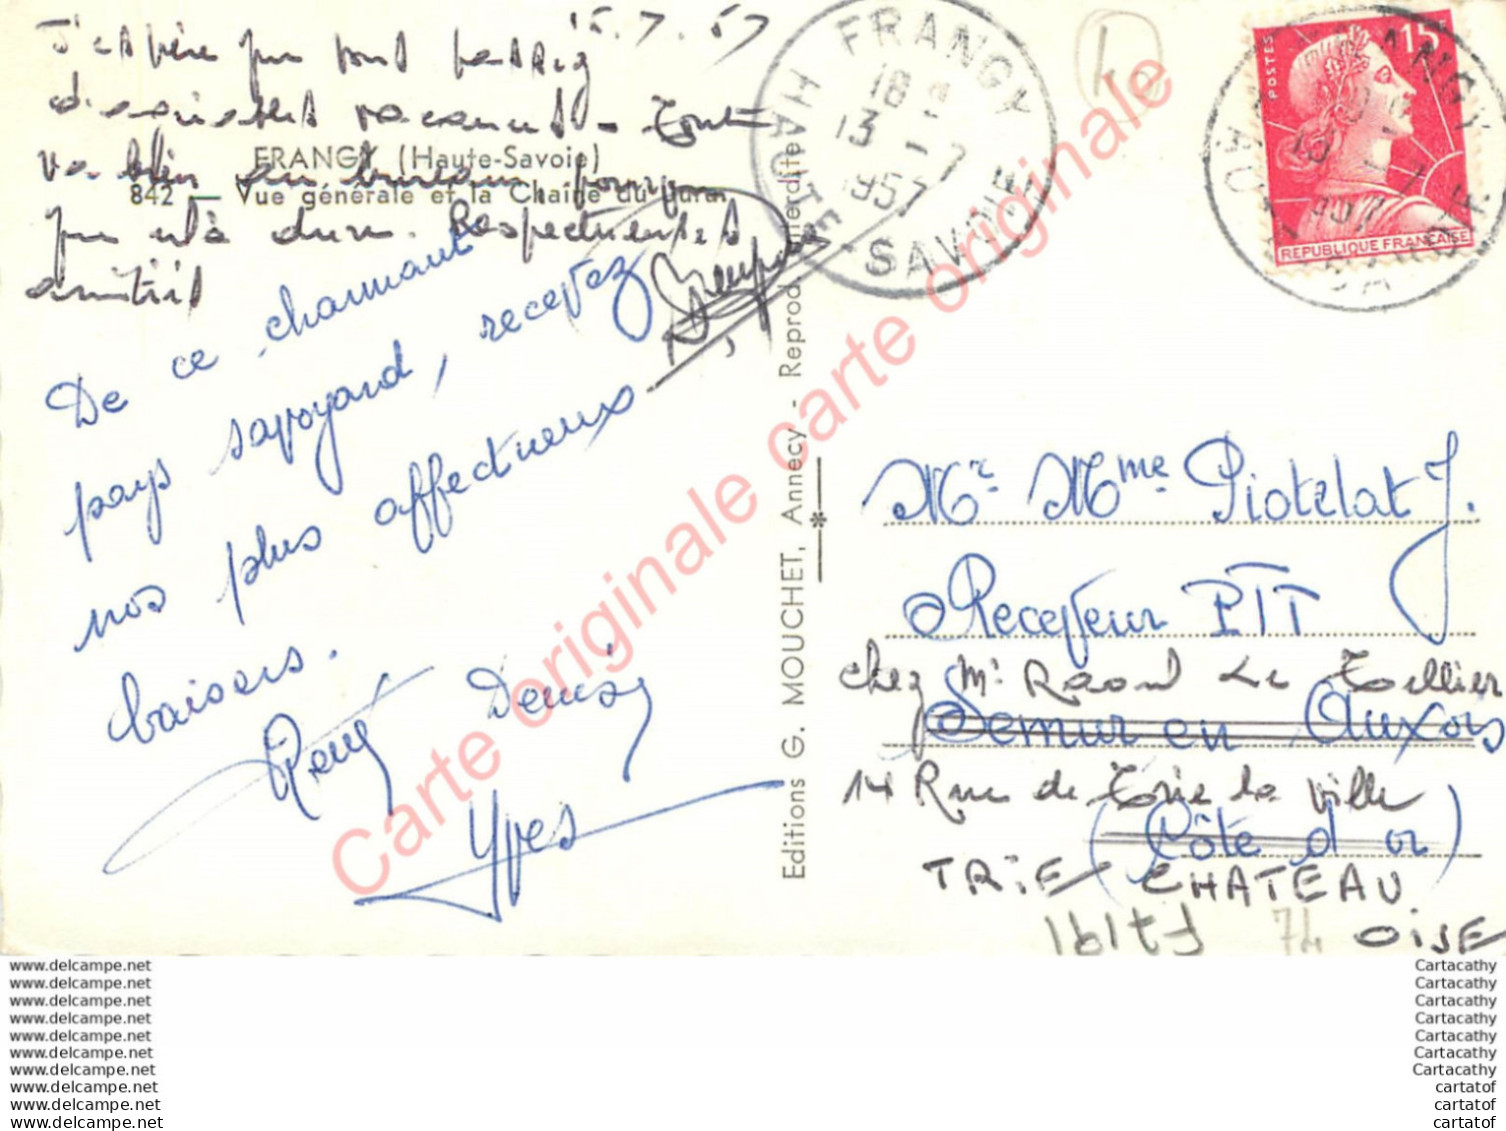 15.7.57
J'espère que vous passez
d'excellentes vacances - Tout
va bien au bureau pourvu
que cela dure. Respectueuses
amitiés
FRANGY (Haute-Savoie)
842 — Vue générale et la Chaîne du Jura
De ce charmant
pays savoyard, recevez
nos plus affectueux
baisers.
Rémy Denis
Yves
Editions G. MOUCHET, Annecy - Reprod. interdite
FRANGY
18
13 - 7
1957
HAUTE-SAVOIE
POSTES
15F
REPUBLIQUE FRANÇAISE
Mr Mme Piotelat J.
Receveur PTT
chez Mr Raoul Le Tellier
Semur en Auxois
14 Rue de Trie la Ville
(Côte d'or)
TRIE CHATEAU
74 OISE
Carte originale carte originale
www.delcampe.net
www.delcampe.net
www.delcampe.net
www.delcampe.net
www.delcampe.net
www.delcampe.net
www.delcampe.net
www.delcampe.net
www.delcampe.net
www.delcampe.net
Cartacathy
Cartacathy
Cartacathy
Cartacathy
Cartacathy
Cartacathy
Cartacathy
cartatof
cartatof
cartatof